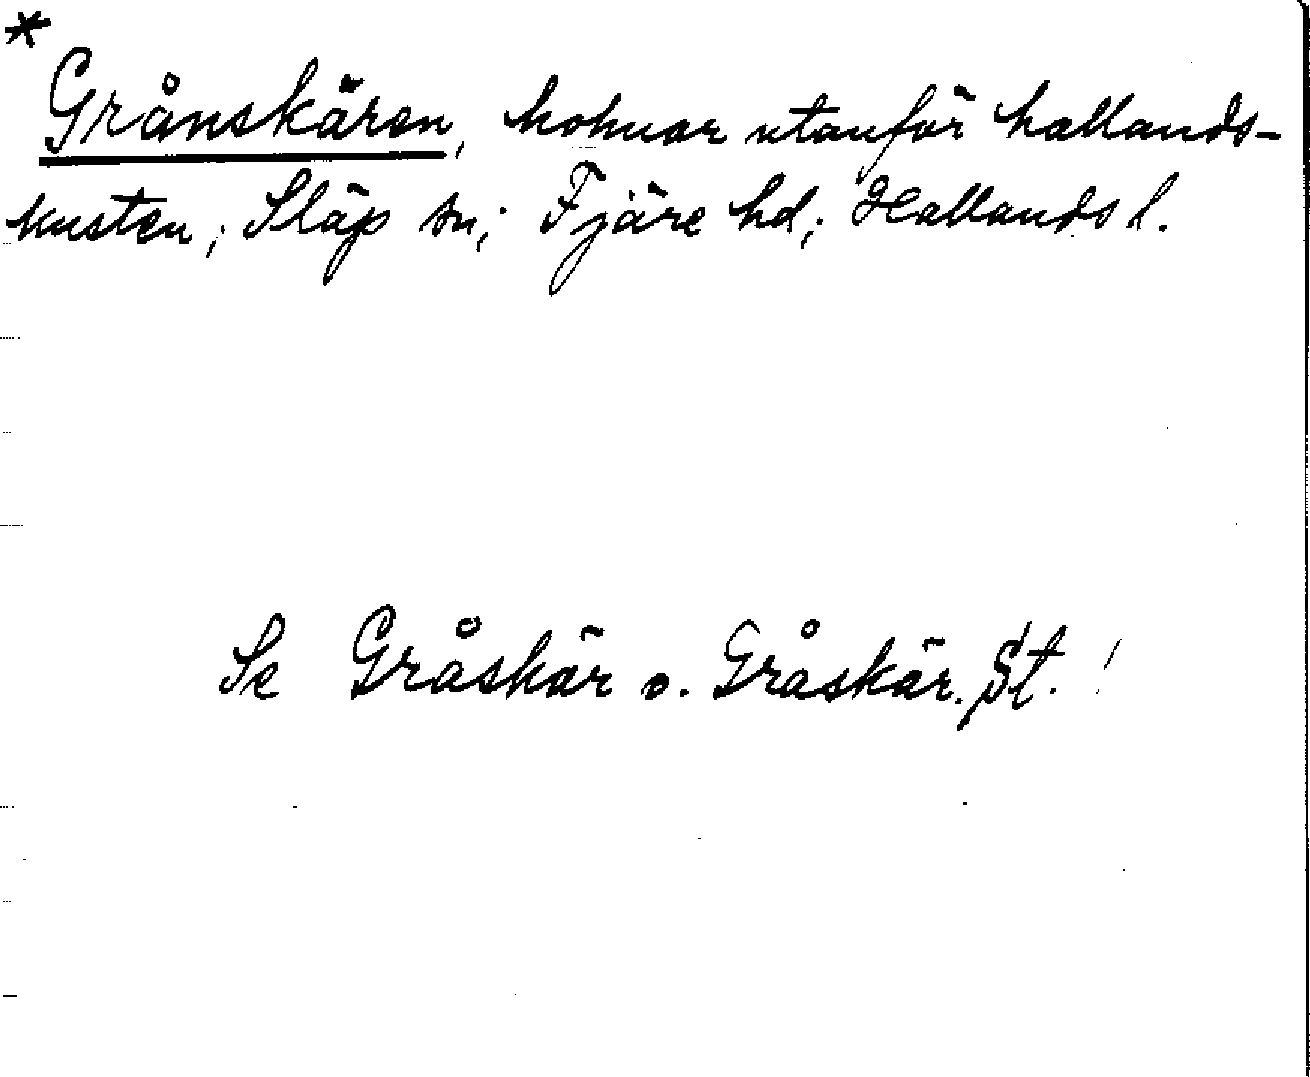 *
Grånskären, holmar utanför hallands-
kusten; Släp sn; Fjäre hd; Hallands l.
Se Gråskär o. Gråskär, St. !